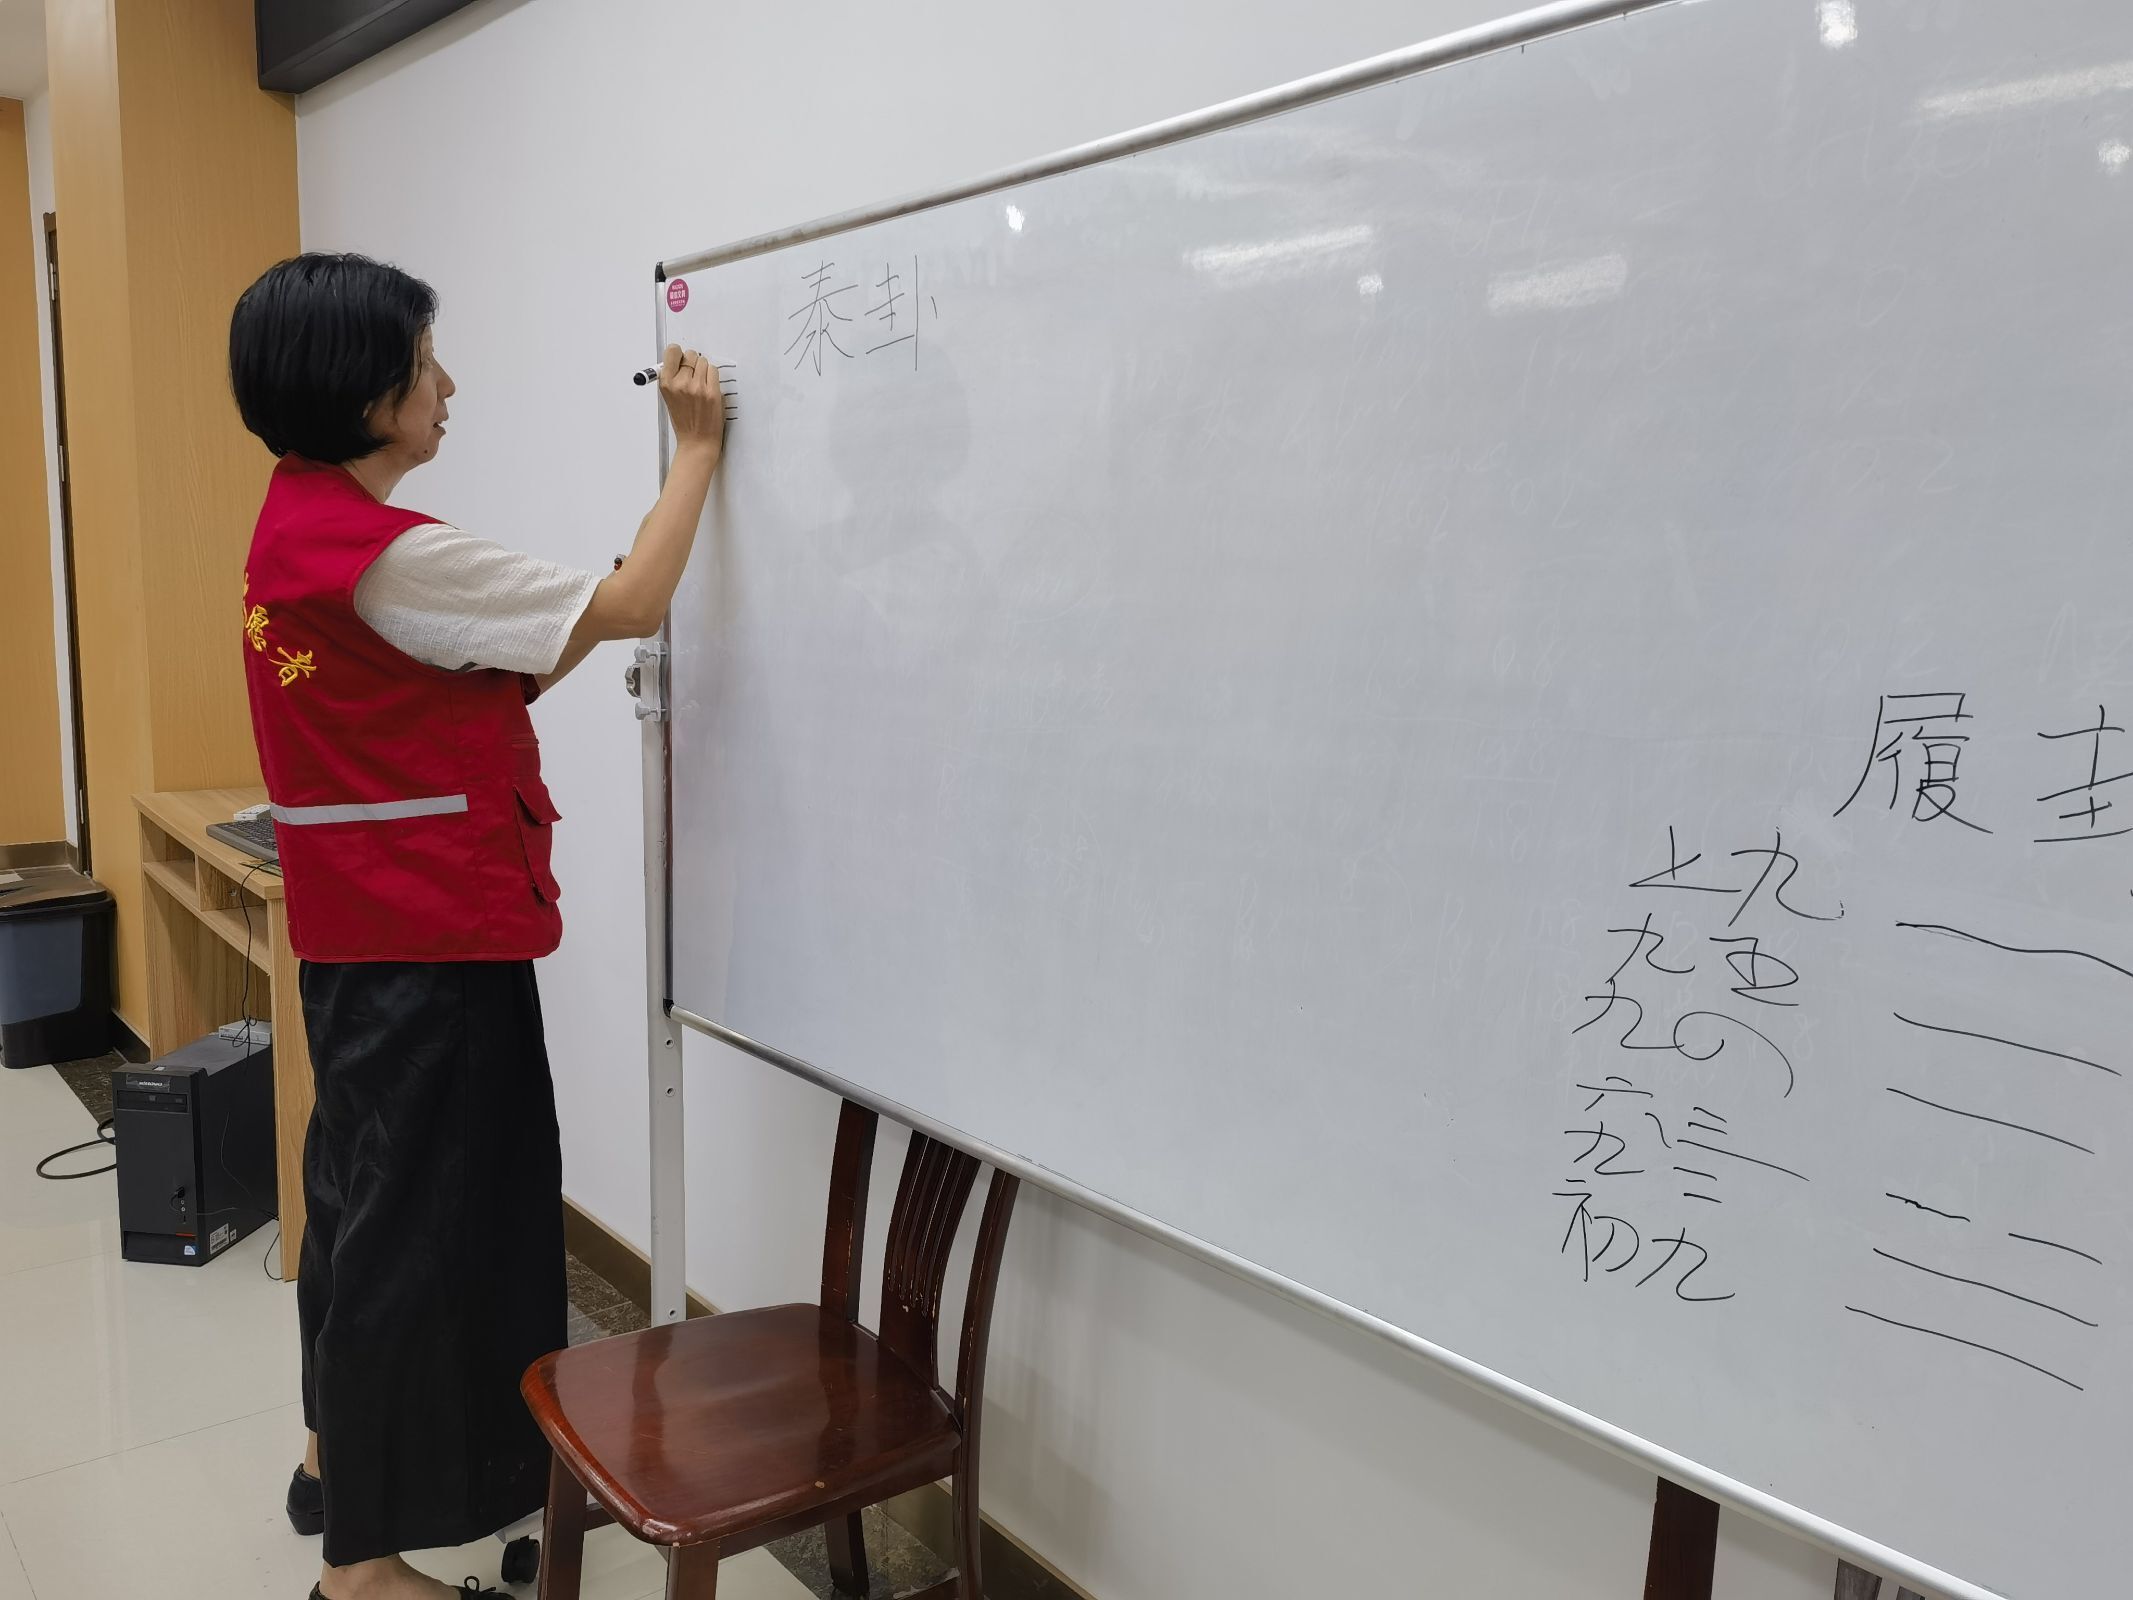 泰卦
履卦
上九
九五
九四
六三
九二
初九
愿者